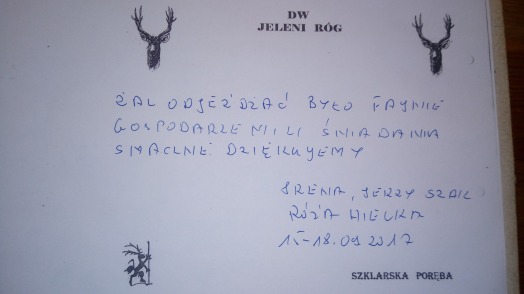 DW
JELENI RÓG
ŻAL ODJEŻDŻAĆ BYŁO FAJNIE
GOSPODARZE MILI ŚNIADANIA
SMACZNE DZIĘKUJEMY
IRENA, JERZY SZAK
RÓŻA WIELKA
15-18.09.2017
SZKLARSKA PORĘBA